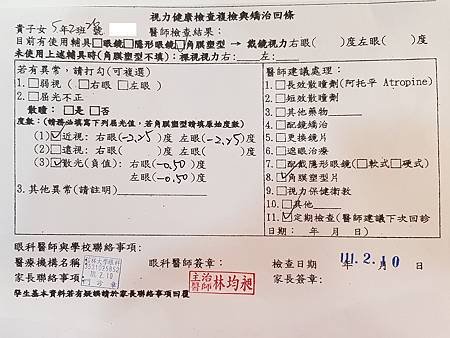 視力健康檢查複檢與矯治回條
貴子女 5年2班 號 醫師檢查結果：
目前有使用輔具□眼鏡□隱形眼鏡□角膜塑型 → 戴鏡視力右眼( )度左眼( )度
未使用上述輔具時(角膜塑型不填)：裸視視力右: 左:
若有異常，請打勾(可複選)
1.□弱視（□右眼 □左眼）
2.□屈光不正
散瞳：□是 □否
度數：(請務必填寫下列屈光值，若角膜塑型請填原始度數)
(1)☑近視：右眼(-2.75)度 左眼(-2.75)度
(2)□遠視：右眼( )度 左眼( )度
(3)☑散光(負值)：右眼(-0.50)度
左眼(-0.50)度
3.其他異常(請註明)
醫師建議處理：
1.□長效散瞳劑(阿托平 Atropine)
2.□短效散瞳劑
3.□其他藥物
4.□配鏡矯治
5.□更換鏡片
6.□遮眼治療
7.□配戴隱形眼鏡(□軟式□硬式)
8.☑角膜塑型片
9.□視力保健衛教
10.□其他
11.☑定期檢查(醫師建議下次回診
日期： 年 月 日)
眼科醫師與學校聯絡事項:
醫療機構名稱： 眼科醫師簽章： 主治醫師 林均昶 檢查日期 111年2月10日
家長聯絡事項: 家長簽章:
學生基本資料若有疑誤請於家長聯絡事項回覆